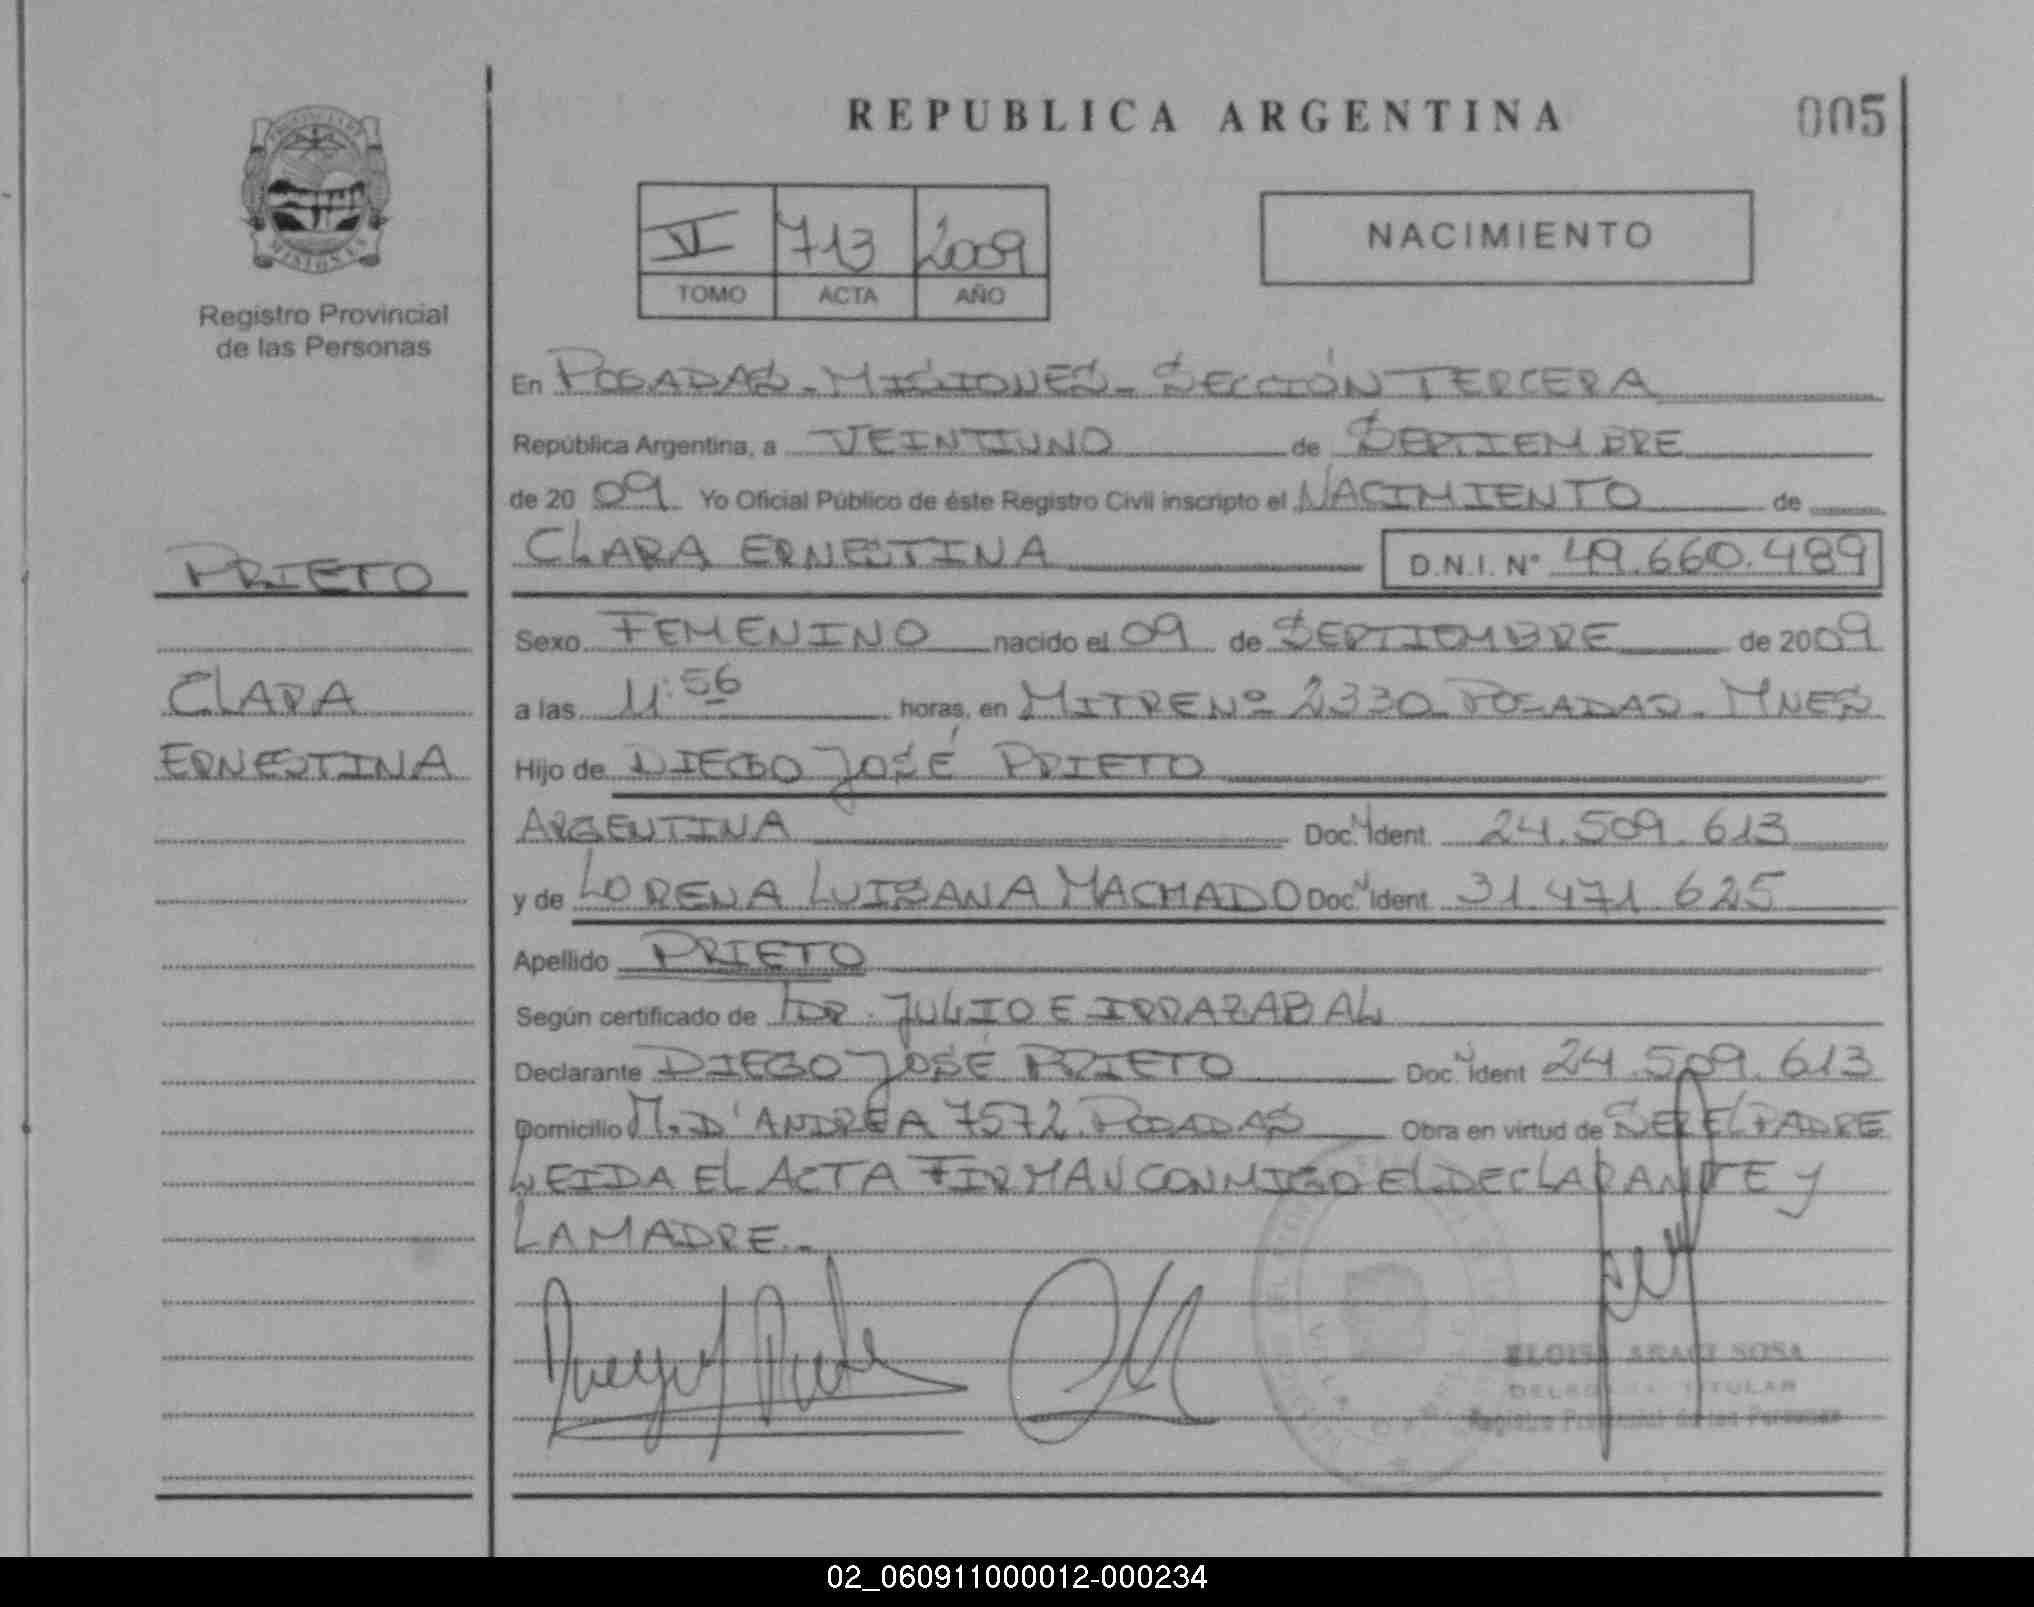 REPUBLICA ARGENTINA
005
PROVINCIA DE
MISIONES
Registro Provincial
de las Personas
VI 713 2009
TOMO ACTA AÑO
NACIMIENTO
En POSADAS - MISIONES - SECCIÓN TERCERA
República Argentina, a VEINTIUNO de SEPTIEMBRE
de 20 09 Yo Oficial Público de éste Registro Civil inscripto el NACIMIENTO de
CLARA ERNESTINA D.N.I. Nº 49.660.489
PRIETO
CLARA
ERNESTINA
Sexo FEMENINO nacido el 09 de SEPTIEMBRE de 2009
a las 11:56 horas, en MITRE Nº 2330 POSADAS - MNES
Hijo de DIEGO JOSÉ PRIETO
ARGENTINA Doc. Ident. 24.509.613
y de LORENA LUISANA MACHADO Doc. Ident. 31.471.625
Apellido PRIETO
Según certificado de DR. JULIO E IRRAZABAL
Declarante DIEGO JOSÉ PRIETO Doc. Ident 24.509.613
Domicilio M. D'ANDREA 7572 POSADAS Obra en virtud de SER EL PADRE
LEIDA EL ACTA FIRMAN CONMIGO EL DECLARANTE Y
LA MADRE.-
ELOISA ARACI SOSA
DELEGADA TITULAR
Registro Provincial de las Personas
02_060911000012-000234